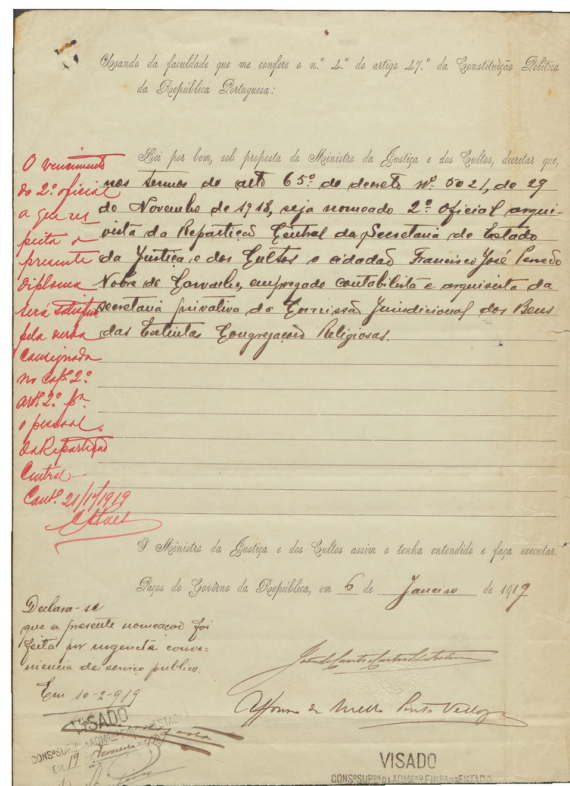 Usando da faculdade que me confere o n.º 4.º do artigo 47.º da Constituição Politica
da Republica Portuguesa:
Hei por bem, sob proposta do Ministro da Justiça e dos Cultos, decretar que,
nos termos do artº 65º do decreto nº 5021, de 29
de Novembro de 1918, seja nomeado 2º oficial arqui-
vista da Repartição Central da Secretaria de Estado
da Justiça e dos Cultos o cidadão Francisco José
Nobre de Carvalho, empregado contabilista e arquivista da
secretaria privativa da Comissão Jurisdicional dos Bens
das Extintas Congregações Religiosas.
O vencimento
do 2º oficial
a que res
peita o
presente
diploma
será satisfeito
pela verba
consignada
no Capº 2º
artº 2º pª
o pessoal
da Repartição
Central
Contº 21/1/1919
O Ministro da Justiça e dos Cultos assim o tenha entendido e faça executar.
Paços do Governo da Republica, em 6 de Janeiro de 1919
Declara-se
que a presente nomeação foi
feita por urgente conve-
niencia de serviço publico.
Em 10-2-919
VISADO
CONSº SUPºʳ DA ADMºᴬᴼ FINʳᴬ DO ESTADO
Em 19 Fevereiro
VISADO
CONSº SUPºʳ DA ADMºᴬᴼ FINʳᴬ DO ESTADO